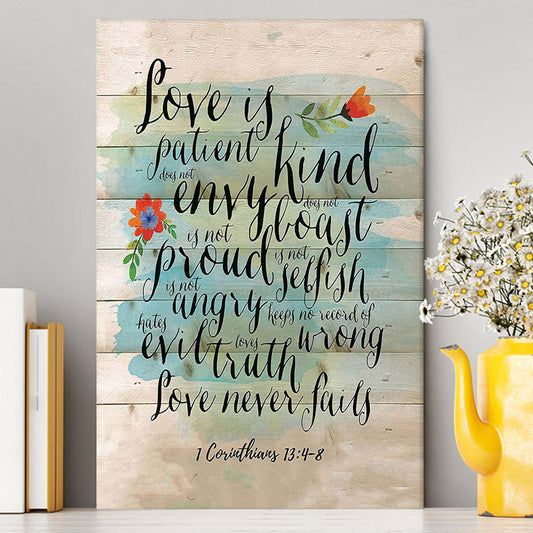 Love is
patient kind
does not does not
envy boast
is not is not
proud selfish
is not
angry keeps no record of
hates wrong
evil loves
truth
Love never fails
1 Corinthians 13:4-8